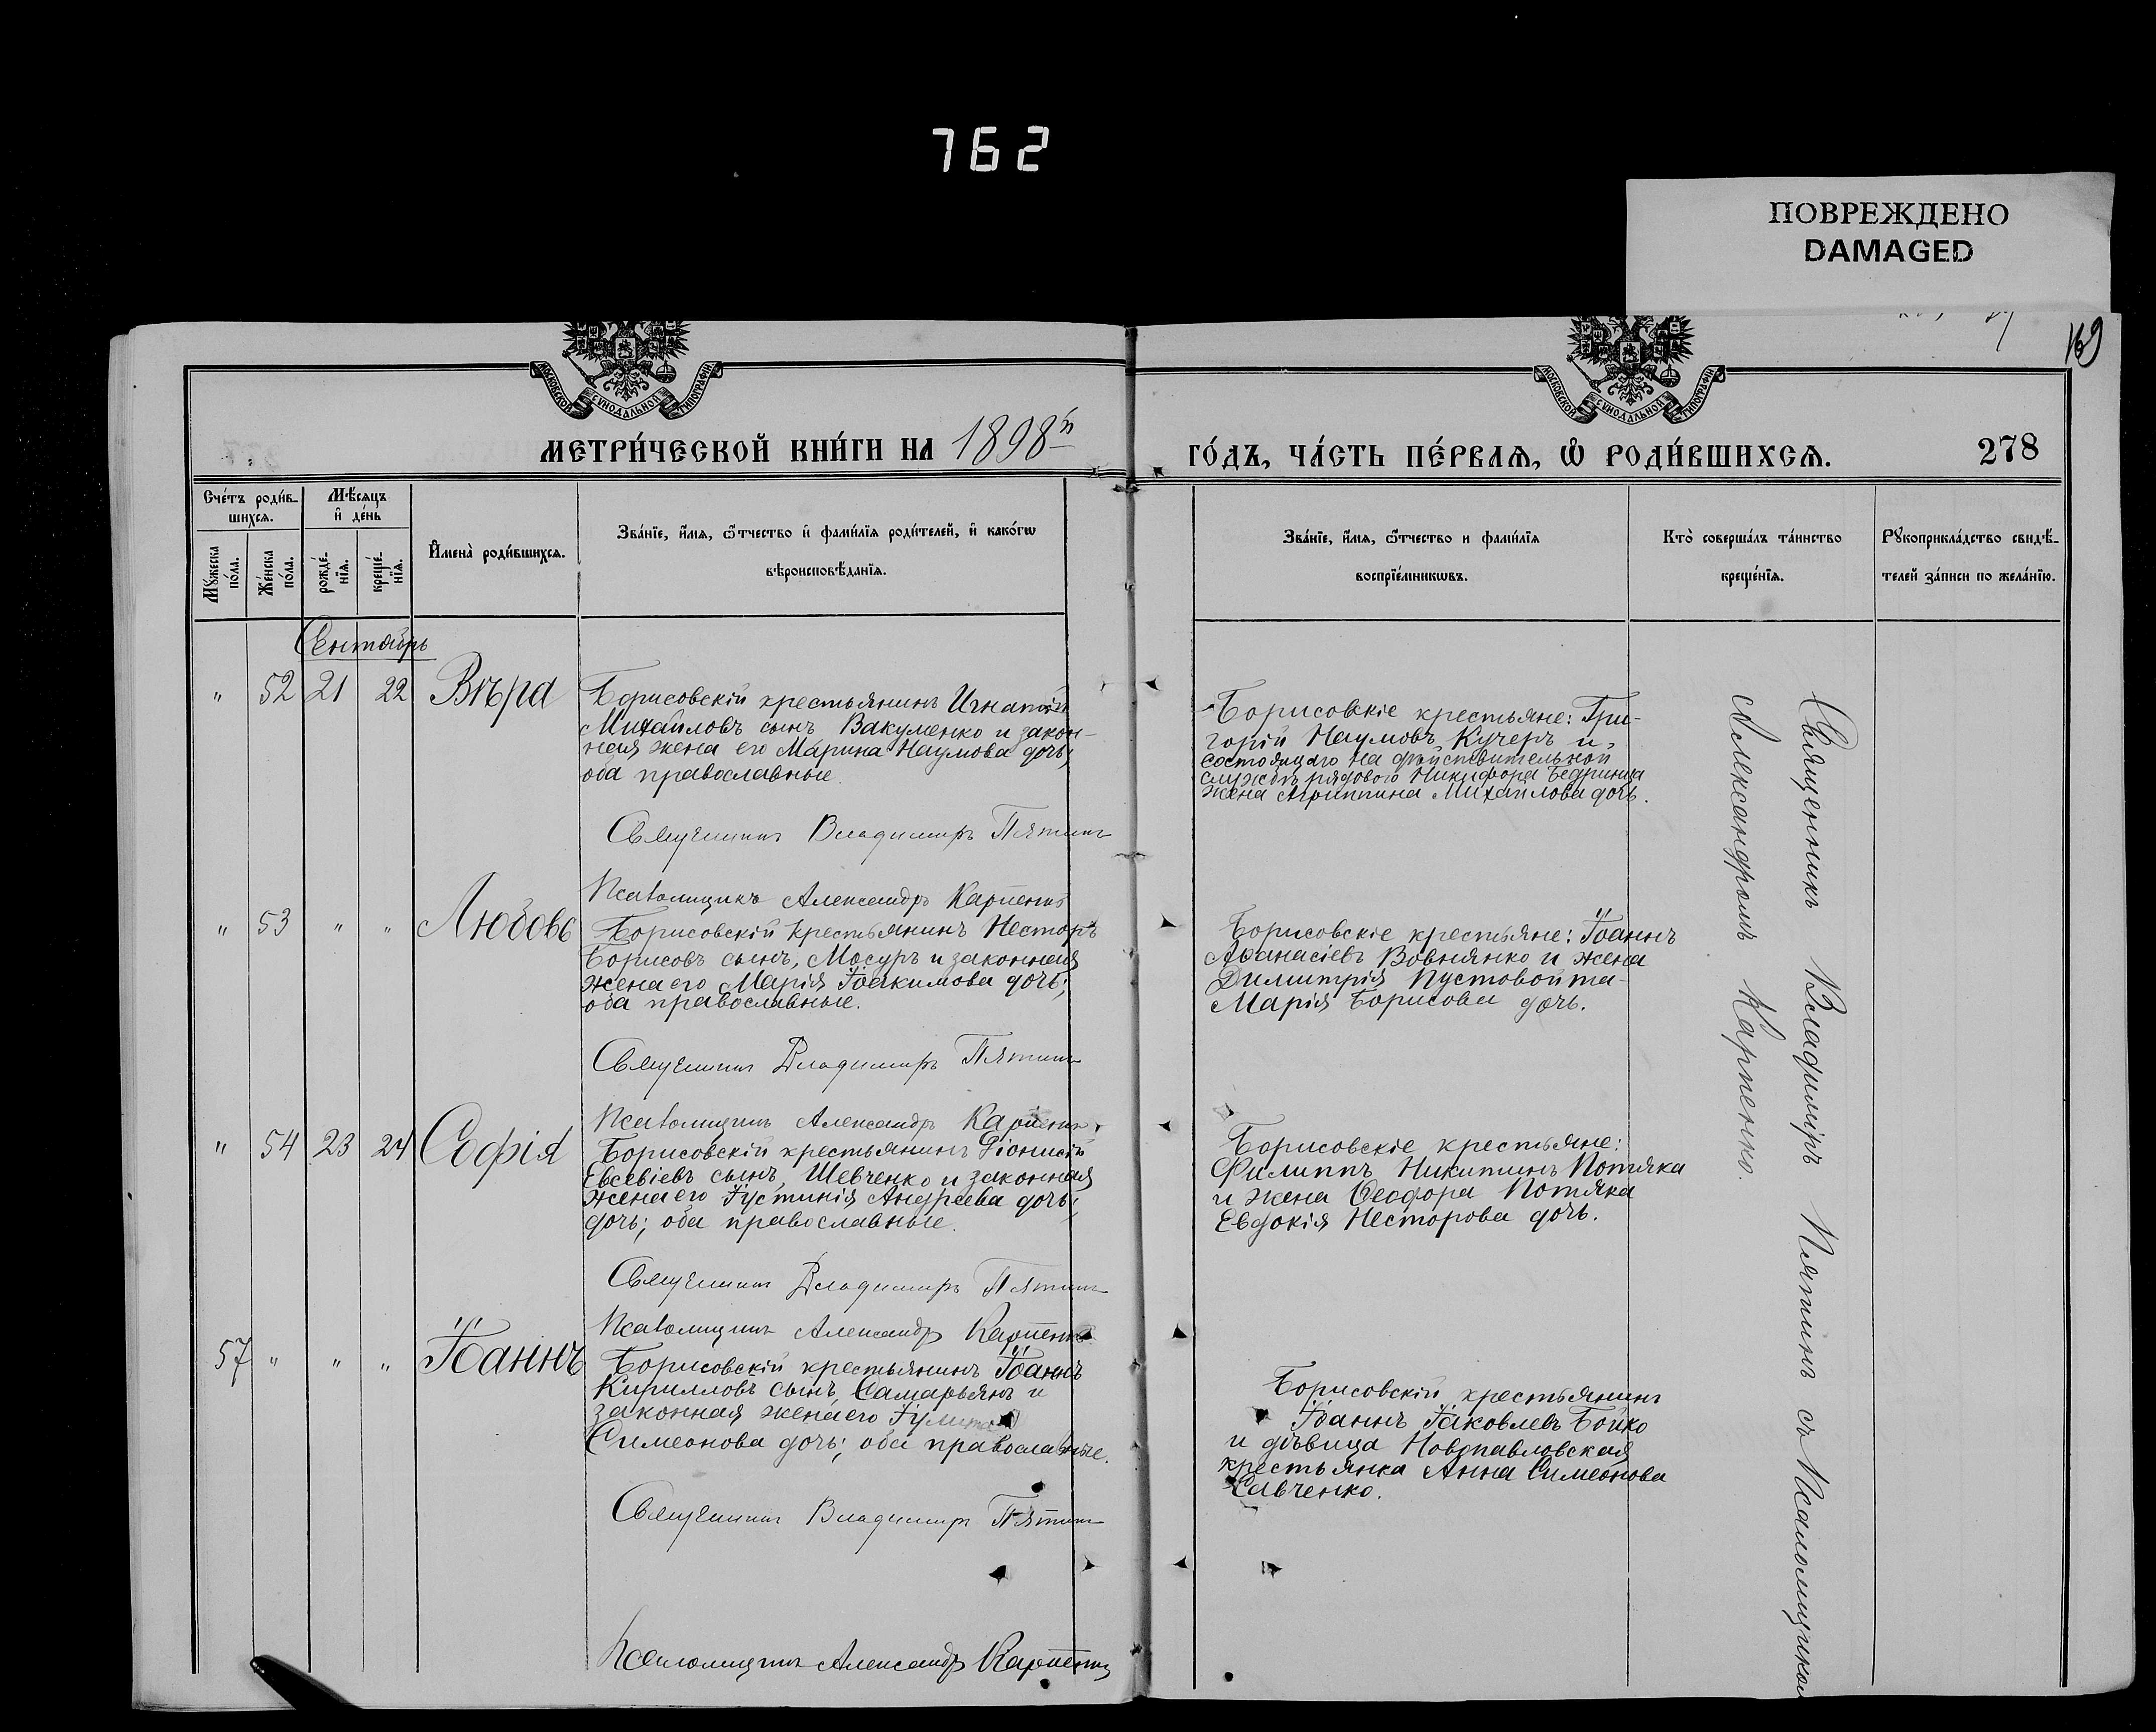 762
ПОВРЕЖДЕНО
DAMAGED
169
МОСКОВСКОЙ СѴНОДАЛЬНОЙ ТИПОГРАФІИ
МОСКОВСКОЙ СѴНОДАЛЬНОЙ ТИПОГРАФІИ
МЕТРИ́ЧЕСКОЙ КНИ́ГИ НА 1898й
ГО́ДЪ, ЧА́СТЬ ПЕ́РВАѦ, Ѡ РОДИ́ВШИХСѦ.
278
Сче́тъ роди́в-
шихсѧ.
Мѣ́сѧцъ
и҆ де́нь
Мꙋ́жеска
по́ла.
Же́нска
по́ла.
рожде́-
нїѧ.
креще́-
нїѧ.
И҆мена̀ роди́вшихсѧ.
Зва́нїе, и҆́мѧ, ѻ҆́тчество и҆ фами́лїѧ роди́телей, и҆ како́гѡ
вѣроисповѣ́данїѧ.
Зва́нїе, и҆́мѧ, ѻ҆́тчество и фами́лїѧ
воспрїе́мникѡвъ.
Кто̀ соверша́лъ та́инство
креще́нїѧ.
Рꙋкоприкла́дство свидѣ́-
телей за́писи по жела́нїю.
Сентябрь
" 52 21 22 Вѣра
Борисовскій крестьянинъ Игнатій
Михайловъ сынъ Вакуменко и закон-
ная жена его Марина Наумова дочь,
оба православные.
Священникъ Владимиръ Пятинъ
Псаломщикъ Александръ Карпенко
Борисовскіе крестьяне: Гри-
горій Наумовъ Кучеръ и,
состоящаго на дѣйствительной
службѣ рядового Никифора Бедринца
жена Агриппина Михайлова дочь.
" 53 " " Любовь
Борисовскій крестьянинъ Несторъ
Борисовъ сынъ, Мосуръ и законная
жена его Марія Іоакимова дочь;
оба православные.
Священникъ Владимиръ Пятинъ
Псаломщикъ Александръ Карпенко
Борисовскіе крестьяне: Іоаннъ
Аѳанасіевъ Вовнянко и жена
Димитрія Пустовойта-
Марія Борисова дочь.
" 54 23 24 Софія
Борисовскій крестьянинъ Діонисій
Евсевіевъ сынъ, Шевченко и законная
жена его Іустинія Андреева дочь;
дочь; оба православные.
Священникъ Владимиръ Пятинъ
Псаломщикъ Александръ Карпенко
Борисовскіе крестьяне:
Филиппъ Никитинъ Потяка
и жена Ѳеодора Потяка
Евдокія Несторова дочь.
57 " " " Іоаннъ
Борисовскій крестьянинъ Іоаннъ
Кирилловъ сынъ, Самарьянъ и
законная жена его
Симеонова дочь; оба православные.
Священникъ Владимиръ Пятинъ
Псаломщикъ Александръ Карпенко
Борисовскій крестьянинъ
Іоаннъ Іаковлевъ Бойко
и дѣвица Новопавловская
крестьянка Анна Симеонова
Савченко.
Священникъ Владиміръ Пятинъ съ Псаломщикомъ
Александромъ Карпенко.